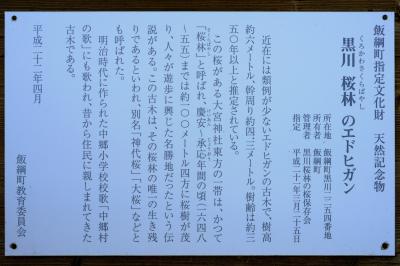 飯綱町指定文化財　天然記念物
くろかわさくらばやし
黒川 桜林 のエドヒガン
所在地　飯綱町黒川二二五四番地
所有者　飯綱町
管理者　黒川桜林の桜保存会
指定　平成二十一年三月二十五日
近在には類例が少ないエドヒガンの古木で、樹高
約六メートル、幹周り約四、三メートル、樹齢は約三
五〇年以上と推定されている。
この桜がある大宮神社東方の一帯は、かつて
『桜林』と呼ばれ、慶安～承応年間の頃(一六四八
～五五)までは約一〇〇メートル四方に桜樹が茂
り、人々が遊歩に興じた名勝地だったという伝
説がある。この古木は、その桜林の唯一の生き残
りであるといわれ、別名「神代桜」「大桜」などと
も呼ばれた。
明治時代に作られた中郷小学校校歌「中郷村
の歌」にも歌われ、昔から住民に親しまれてきた
古木である。
平成二十二年四月
飯綱町教育委員会